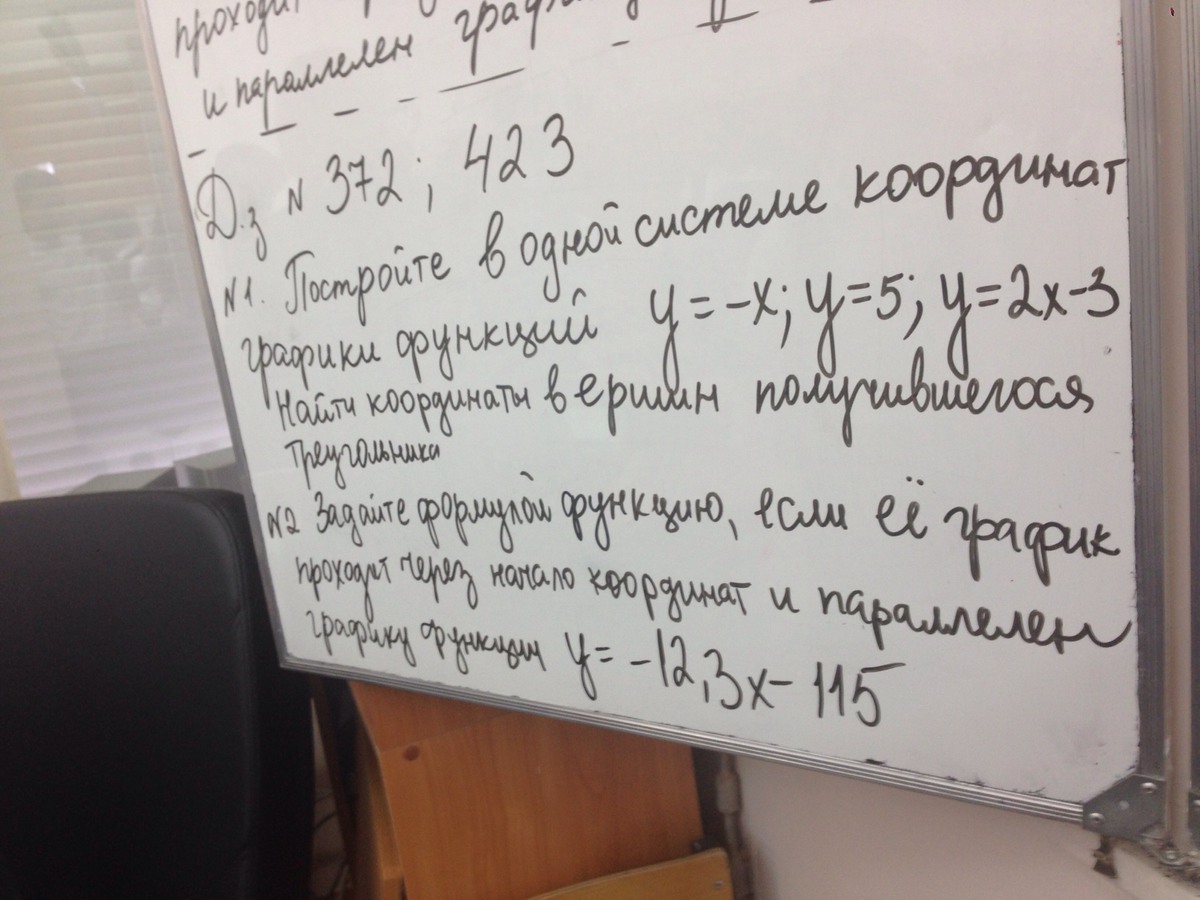 проходит
и параллелен
Д.з N 372; 423
N1. Постройте в одной системе координат
графики функций y = -x; y=5; y=2x-3
Найти координаты вершин получившегося
треугольника
N2 Задайте формулой функцию, если её график
проходит через начало координат и параллелен
графику функции y= -12,3x- 115